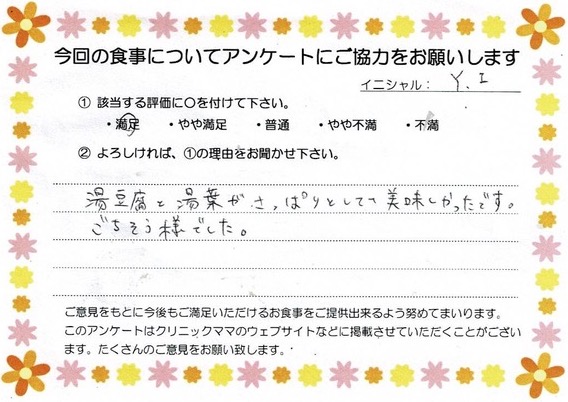 今回の食事についてアンケートにご協力をお願いします
イニシャル： Y.I
① 該当する評価に○を付けて下さい。
・満足 ・やや満足 ・普通 ・やや不満 ・不満
② よろしければ、①の理由をお聞かせ下さい。
湯豆腐と湯葉がさっぱりとしてい美味しかったです。
ごちそう様でした。
ご意見をもとに今後もご満足いただけるお食事をご提供出来るよう努めてまいります。
このアンケートはクリニックママのウェブサイトなどに掲載させていただくことがござい
ます。たくさんのご意見をお願い致します。